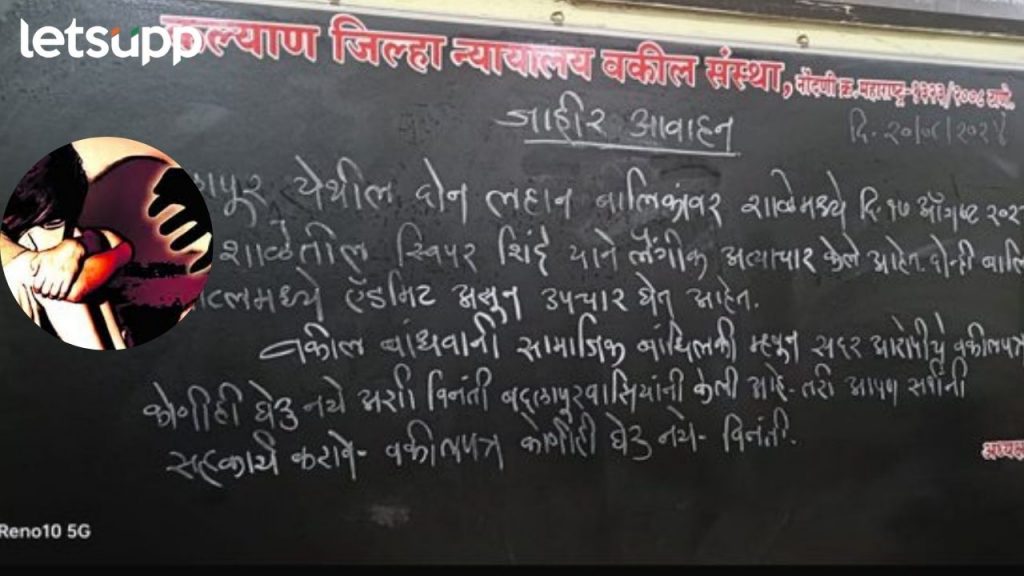 letsupp
कल्याण जिल्हा न्यायालय वकील संस्था, नोंदणी क्र. महाराष्ट्र-१३२३/२००८ ठाणे.
जाहीर आवाहन
दि. २०/०८/२०२४
येथील दोन लहान बालिकांवर शाळेमध्ये दि. १७ ऑगष्ट
शाळेतील स्विपर शिंदे याने लैंगीक अत्याचार केले आहेत. दोन्ही
ॲडमिट असून उपचार घेत आहेत.
वकील बांधवानी सामाजिक बांधिलकी म्हणून सदर आरोपीचे वकीलपत्र
कोणीही घेऊ नये अशी विनंती बदलापूरवासियांनी केली आहे- तरी आपण सर्वांनी
सहकार्य करावे- वकीलपत्र कोणीही घेऊ नये- विनंती.
अध्यक्ष
Reno10 5G